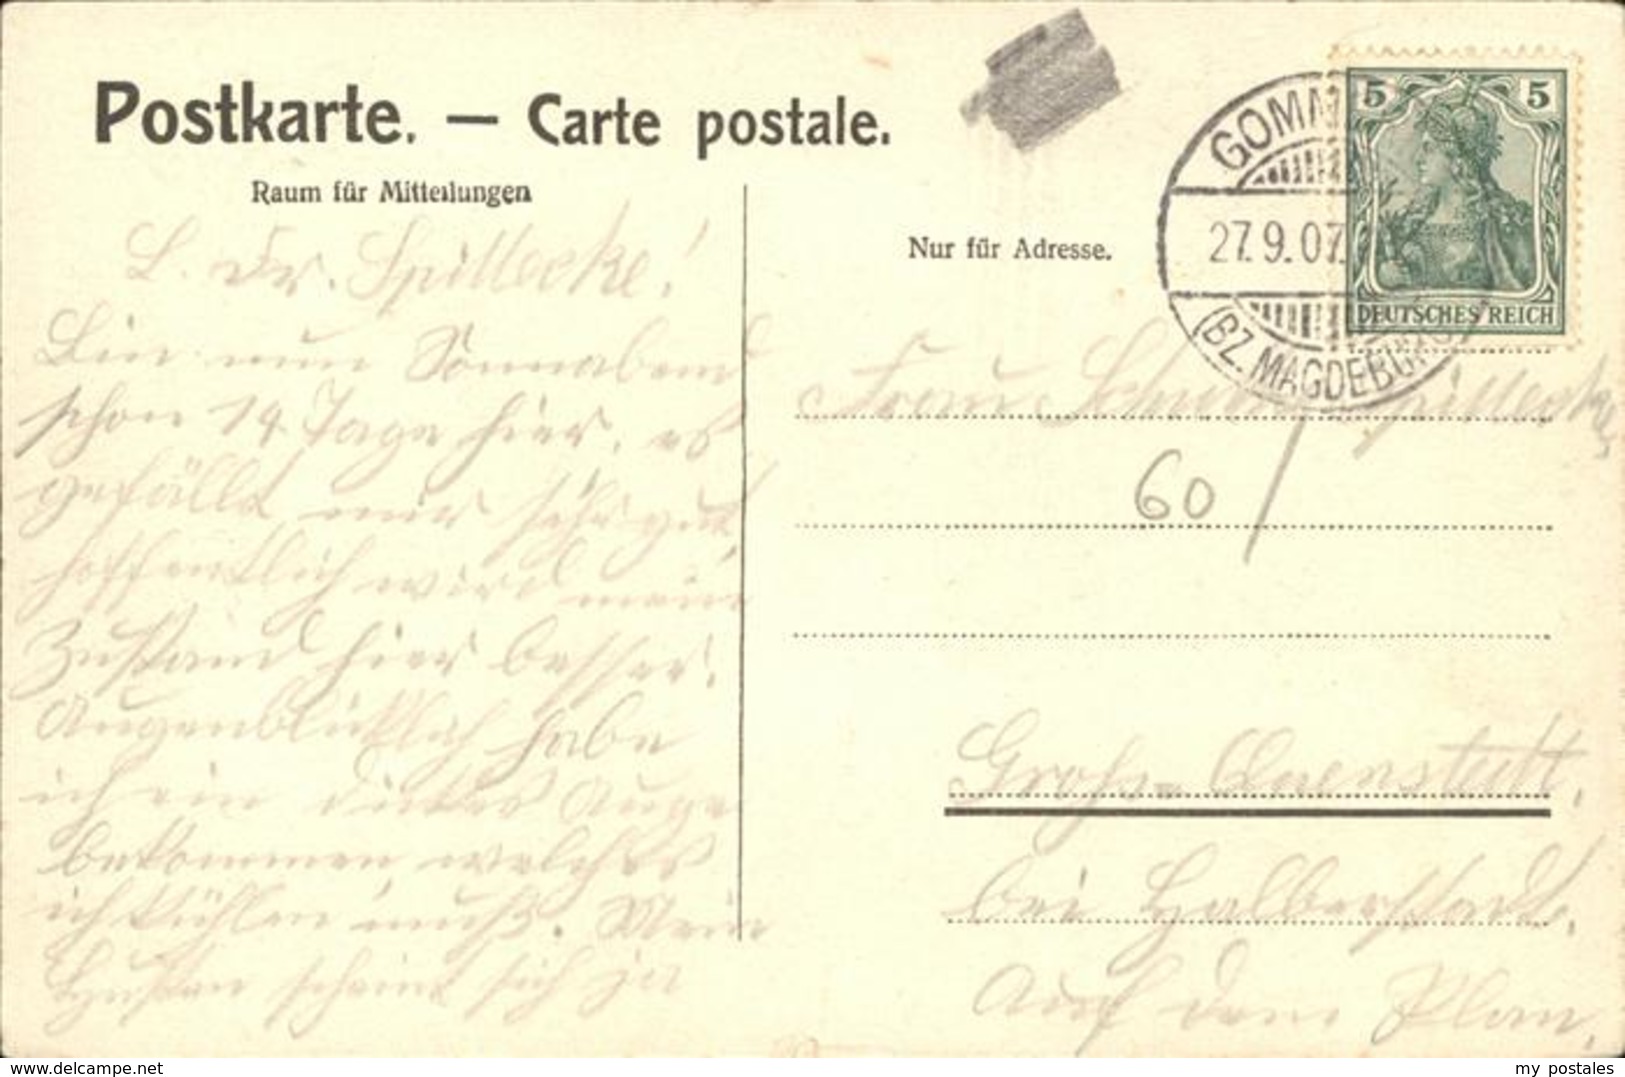 Postkarte. — Carte postale.
Raum für Mitteilungen
Nur für Adresse.
GOMM
27.9.07.
(BZ. MAGDEBURG)
5 5
DEUTSCHES REICH
L. Fr. Spillecke!
Bin nun Sonnabend
schon 14 Tage hier, es
gefällt mir sehr gut
hoffentlich wird mein
Zustand hier besser.
Augenblicklich habe
ich ein dickes Auge
bekommen welches
ich kühlen muß. Mein
Husten scheint sich ja
Frau Spillecke
60
Groß-Quenstedt,
bei Halberstadt,
Auf dem Plan.
www.delcampe.net
my_postales